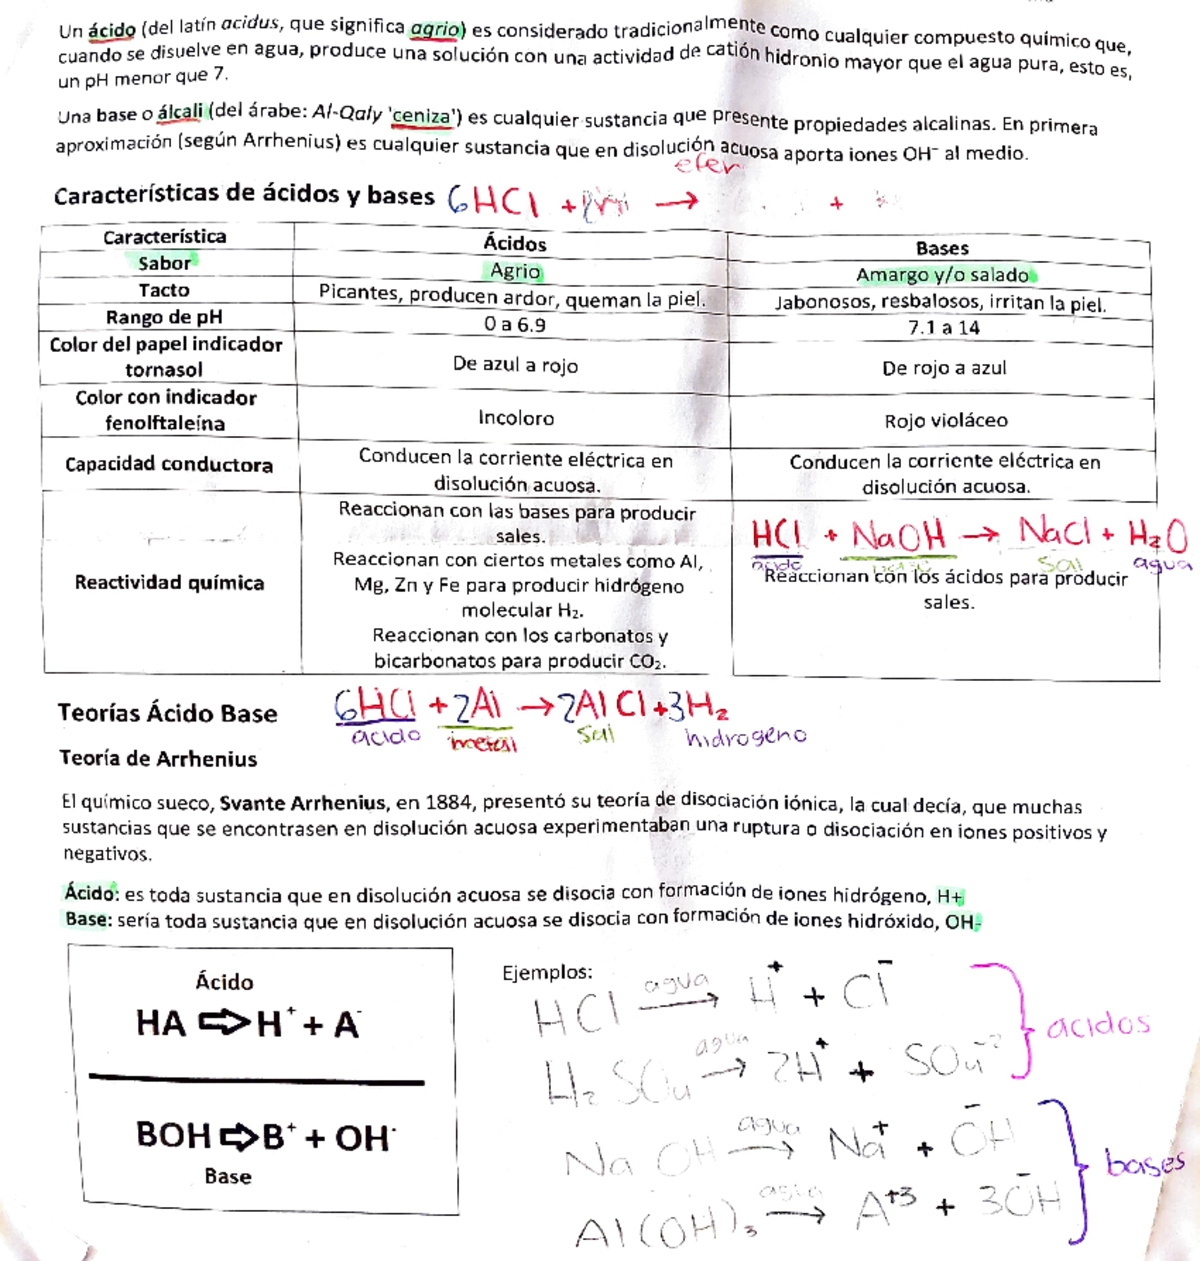 Un ácido (del latín acidus, que significa agrio) es considerado tradicionalmente como cualquier compuesto químico que,
cuando se disuelve en agua, produce una solución con una actividad de catión hidronio mayor que el agua pura, esto es,
un pH menor que 7.
Una base o álcali (del árabe: Al-Qaly 'ceniza') es cualquier sustancia que presente propiedades alcalinas. En primera
aproximación (según Arrhenius) es cualquier sustancia que en disolución acuosa aporta iones OH⁻ al medio.
efer
Características de ácidos y bases 6HCl + → +
Característica Ácidos Bases
Sabor Agrio Amargo y/o salado
Tacto Picantes, producen ardor, queman la piel. Jabonosos, resbalosos, irritan la piel.
Rango de pH 0 a 6.9 7.1 a 14
Color del papel indicador
tornasol De azul a rojo De rojo a azul
Color con indicador
fenolftaleína Incoloro Rojo violáceo
Capacidad conductora Conducen la corriente eléctrica en
disolución acuosa. Conducen la corriente eléctrica en
disolución acuosa.
Reactividad química
Reaccionan con las bases para producir
sales.
Reaccionan con ciertos metales como Al,
Mg, Zn y Fe para producir hidrógeno
molecular H₂.
Reaccionan con los carbonatos y
bicarbonatos para producir CO₂.
HCl + NaOH → NaCl + H₂O
acido Sal agua
Reaccionan con los ácidos para producir
sales.
Teorías Ácido Base 6HCl + 2Al → 2AlCl + 3H₂
acido metal Sal hidrogeno
Teoría de Arrhenius
El químico sueco, Svante Arrhenius, en 1884, presentó su teoría de disociación iónica, la cual decía, que muchas
sustancias que se encontrasen en disolución acuosa experimentaban una ruptura o disociación en iones positivos y
negativos.
Ácido: es toda sustancia que en disolución acuosa se disocia con formación de iones hidrógeno, H+
Base: sería toda sustancia que en disolución acuosa se disocia con formación de iones hidróxido, OH-
Ácido
HA ⇨ H⁺ + A⁻
BOH ⇨ B⁺ + OH⁻
Base
Ejemplos:
agua
HCl → H⁺ + Cl⁻
agua
H₂SO₄ → 2H⁺ + SO₄⁻²
acidos
agua
NaOH → Na⁺ + OH⁻
agua
Al(OH)₃ → A⁺³ + 3OH⁻
bases